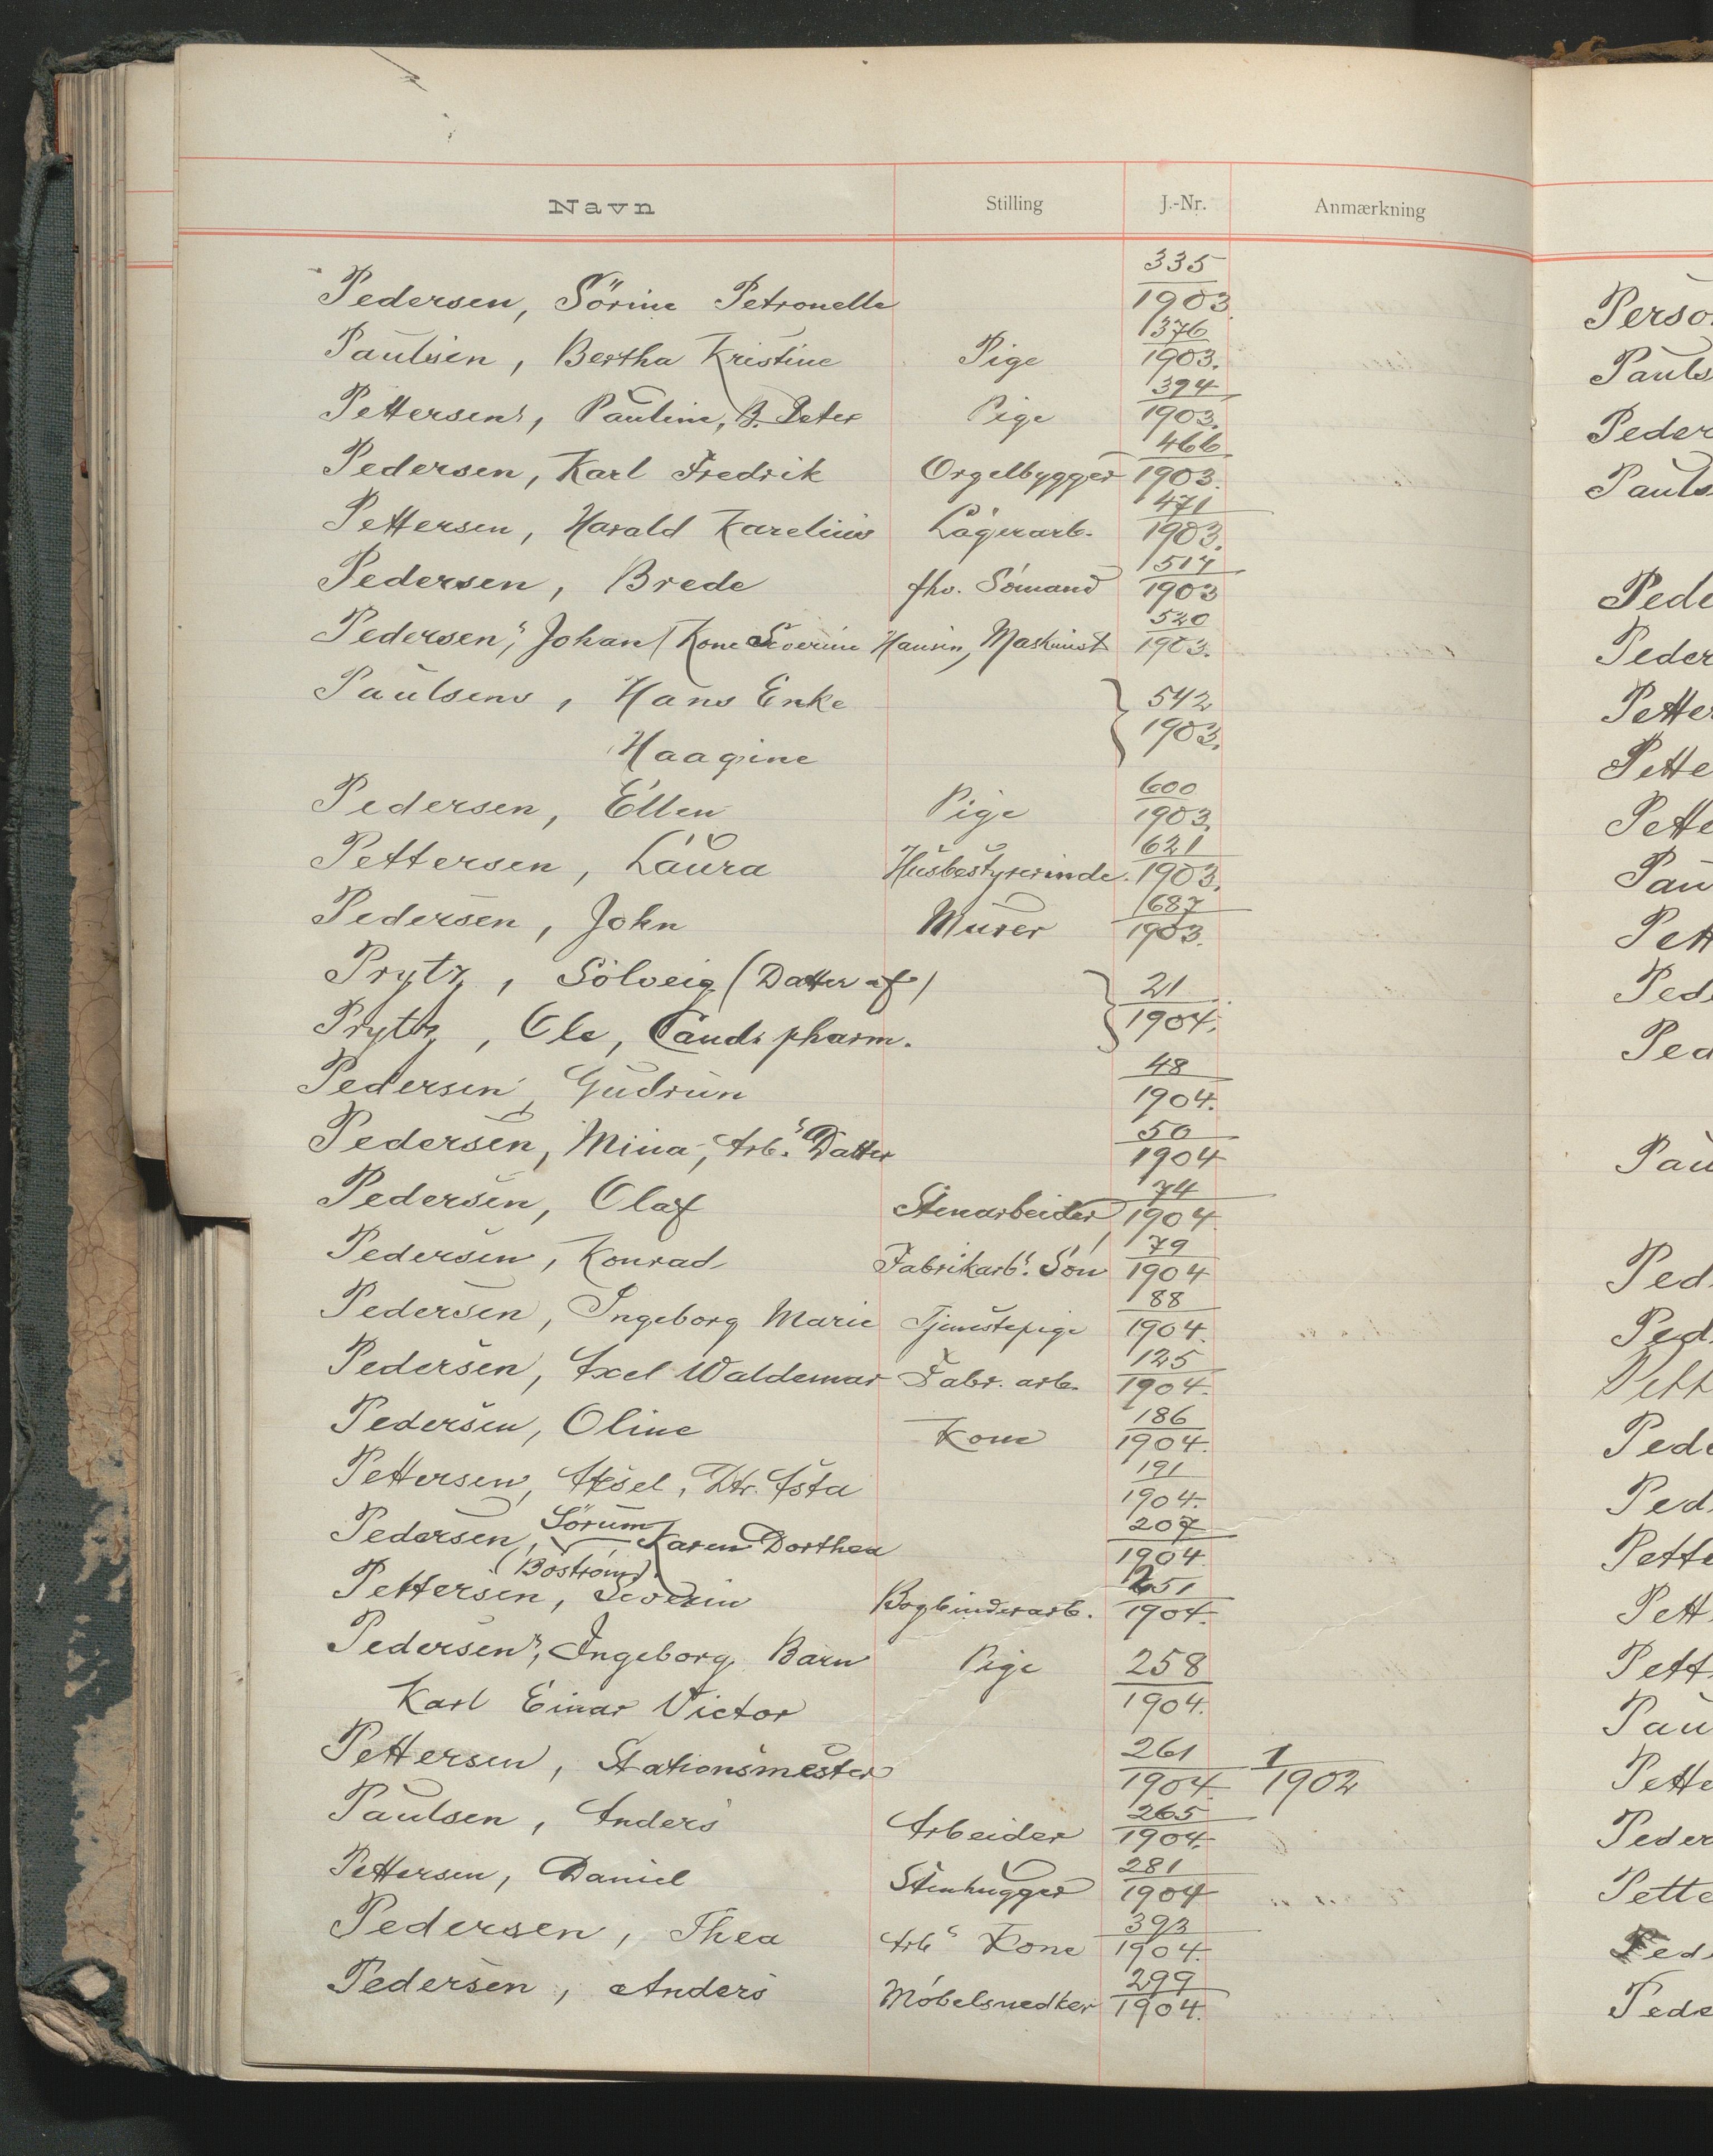 Navn Stilling J.-Nr. Anmærkning
Pedersen, Sörine Petronelle 335/1903
Paulsen, Bertha Kristine Pige 376/1903.
Pettersens, Pauline, B. Peter Pige 394/1903.
Pedersen, Karl Fredrik Orgelbygger 466/1903.
Pettersen, Harald Karelius Lagerarb. 471/1903.
Pedersen, Brede fhv. Sömand 517/1903
Pedersens, Johan (Kone Severine Hansen, Maskinist 520/1903.
Paulsens, Hans Enke 542/1903.
Haagine
Pedersen, Ellen Pige 600/1903
Pettersen, Laura Husbestyrerinde. 621/1903.
Pedersen, John Murer 687/1903.
Prytz, Sölveig (Datter af) 21/1904.
Prytz, Ole, Cand. pharm.
Pedersen, Gudrun 48/1904.
Pedersen, Mina, Arb.s Datter 50/1904
Pedersen, Olaf Stenarbeider, 74/1904
Pedersen, Konrad Fabrikarbs. Sön 79/1904
Pedersen, Ingeborg Marie Tjenestepige 88/1904.
Pedersen, Axel Waldemar Fabr. arb. 125/1904.
Pedersen, Oline Kone 186/1904.
Pettersen, Aksel, Dtr. Asta 191/1904.
Sörum
Pedersen, Karen Dorthea 207/1904.
(Boström)
Pettersen, Severin Bogbinderarb. 251/1904.
Pedersens, Ingeborg Barn Pige 258/1904.
Karl Einar Victor
Pettersen, Stationsmester 261/1904 1/1902
Paulsen, Anders Arbeider 265/1904.
Pettersen, Daniel Stenhugger 281/1904
Pedersen, Thea Arbs Kone 393/1904.
Pedersen, Anders Möbelsnedker 299/1904.
Perso
Pauls
Peder
Pauls
Pede
Peder
Petter
Pette
Pette
Pau
Pett
Ped
Ped
Pau
Ped
Ped
Pett
Pede
Ped
Pette
Pett
Pett
Pau
Pette
Peder
Pette
Ped
Pede